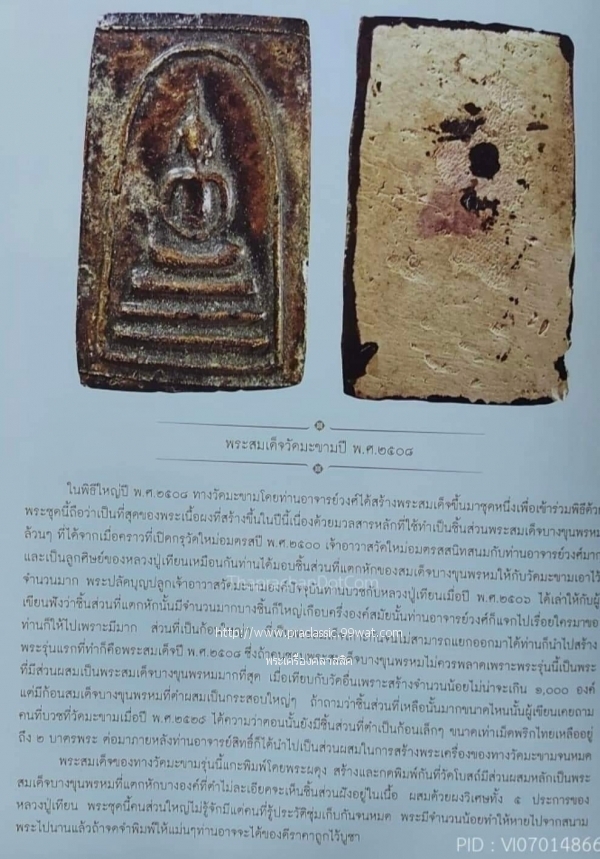 พระสมเด็จวัดมะขามปี พ.ศ.๒๕๐๘
ในพิธีใหญ่ปี พ.ศ.๒๕๐๘ ทางวัดมะขามโดยท่านอาจารย์วงศ์ได้สร้างพระสมเด็จขึ้นมาชุดหนึ่งเพื่อเข้าร่วมพิธีด้วย
พระชุดนี้ถือว่าเป็นที่สุดของพระเนื้อผงที่สร้างขึ้นในปีนี้เนื่องด้วยมวลสารหลักที่ใช้ทำเป็นชิ้นส่วนพระสมเด็จบางขุนพรหม
ล้วนๆ ที่ได้จากเมื่อคราวที่เปิดกรุวัดใหม่อมตรสปี พ.ศ.๒๕๐๐ เจ้าอาวาสวัดใหม่อมตรสสนิทสนมกับท่านอาจารย์วงศ์มาก
และเป็นลูกศิษย์ของหลวงปู่เทียนเหมือนกันท่านได้มอบชิ้นส่วนที่แตกหักของสมเด็จบางขุนพรหมให้กับวัดมะขามเอาไว้
จำนวนมาก พระปลัดบุญปลูกเจ้าอาวาสวัดมะขามองค์ปัจจุบันท่านบวชกับหลวงปู่เทียนเมื่อปี พ.ศ.๒๕๐๖ ได้เล่าให้กับผู้
เขียนฟังว่าชิ้นส่วนที่แตกหักนั้นมีจำนวนมากบางชิ้นก็ใหญ่เกือบครึ่งองค์สมัยนั้นท่านอาจารย์วงศ์ก็แจกไปเรื่อยใครมาขอ
ท่านก็ให้ไปเพราะมีมาก ส่วนที่เป็นก้อน ไม่สามารถแยกออกมาได้ท่านก็นำไปสร้าง
พระรุ่นแรกที่ทำก็คือพระสมเด็จปี พ.ศ.๒๕๐๘ ซึ่งถ้า พระสมเด็จบางขุนพรหมไม่ควรพลาดเพราะพระรุ่นนี้เป็นพระ
ที่มีส่วนผสมเป็นพระสมเด็จบางขุนพรหมมากที่สุด เมื่อเทียบกับวัดอื่นเพราะสร้างจำนวนน้อยไม่น่าจะเกิน ๑,๐๐๐ องค์
แต่มีก้อนสมเด็จบางขุนพรหมที่ตำผสมเป็นกระสอบใหญ่ๆ ถ้าถามว่าชิ้นส่วนที่เหลือนั้นมากขนาดไหนนั้นผู้เขียนเคยถาม
คนที่บวชที่วัดมะขามเมื่อปี พ.ศ.๒๕๒๘ ได้ความว่าตอนนั้นยังมีชิ้นส่วนที่ตำเป็นก้อนเล็กๆ ขนาดเท่าเม็ดพริกไทยเหลืออยู่
ถึง ๒ บาตรพระ ต่อมาภายหลังท่านอาจารย์สิทธิ์ก็ได้นำไปเป็นส่วนผสมในการสร้างพระเครื่องของทางวัดมะขามจนหมด
พระสมเด็จของทางวัดมะขามรุ่นนี้แกะพิมพ์โดยพระผดุง สร้างและกดพิมพ์กันที่วัดโบสถ์มีส่วนผสมหลักเป็นพระ
สมเด็จบางขุนพรหมที่แตกหักบางองค์ที่ตำไม่ละเอียดจะเห็นชิ้นส่วนฝังอยู่ในเนื้อ ผสมด้วยผงวิเศษทั้ง ๕ ประการของ
หลวงปู่เทียน พระชุดนี้คนส่วนใหญ่ไม่รู้จักมีแต่คนที่รู้ประวัติซุ่มเก็บกันจนหมด พระมีจำนวนน้อยทำให้หายไปจากสนาม
พระไปนานแล้วถ้าจดจำพิมพ์ให้แม่นๆท่านอาจจะได้ของดีราคาถูกไว้บูชา
ThaprachanDotCom
http://www.praclassic.99wat.com
พระเครื่องคลาสสิค
PID : VI07014866